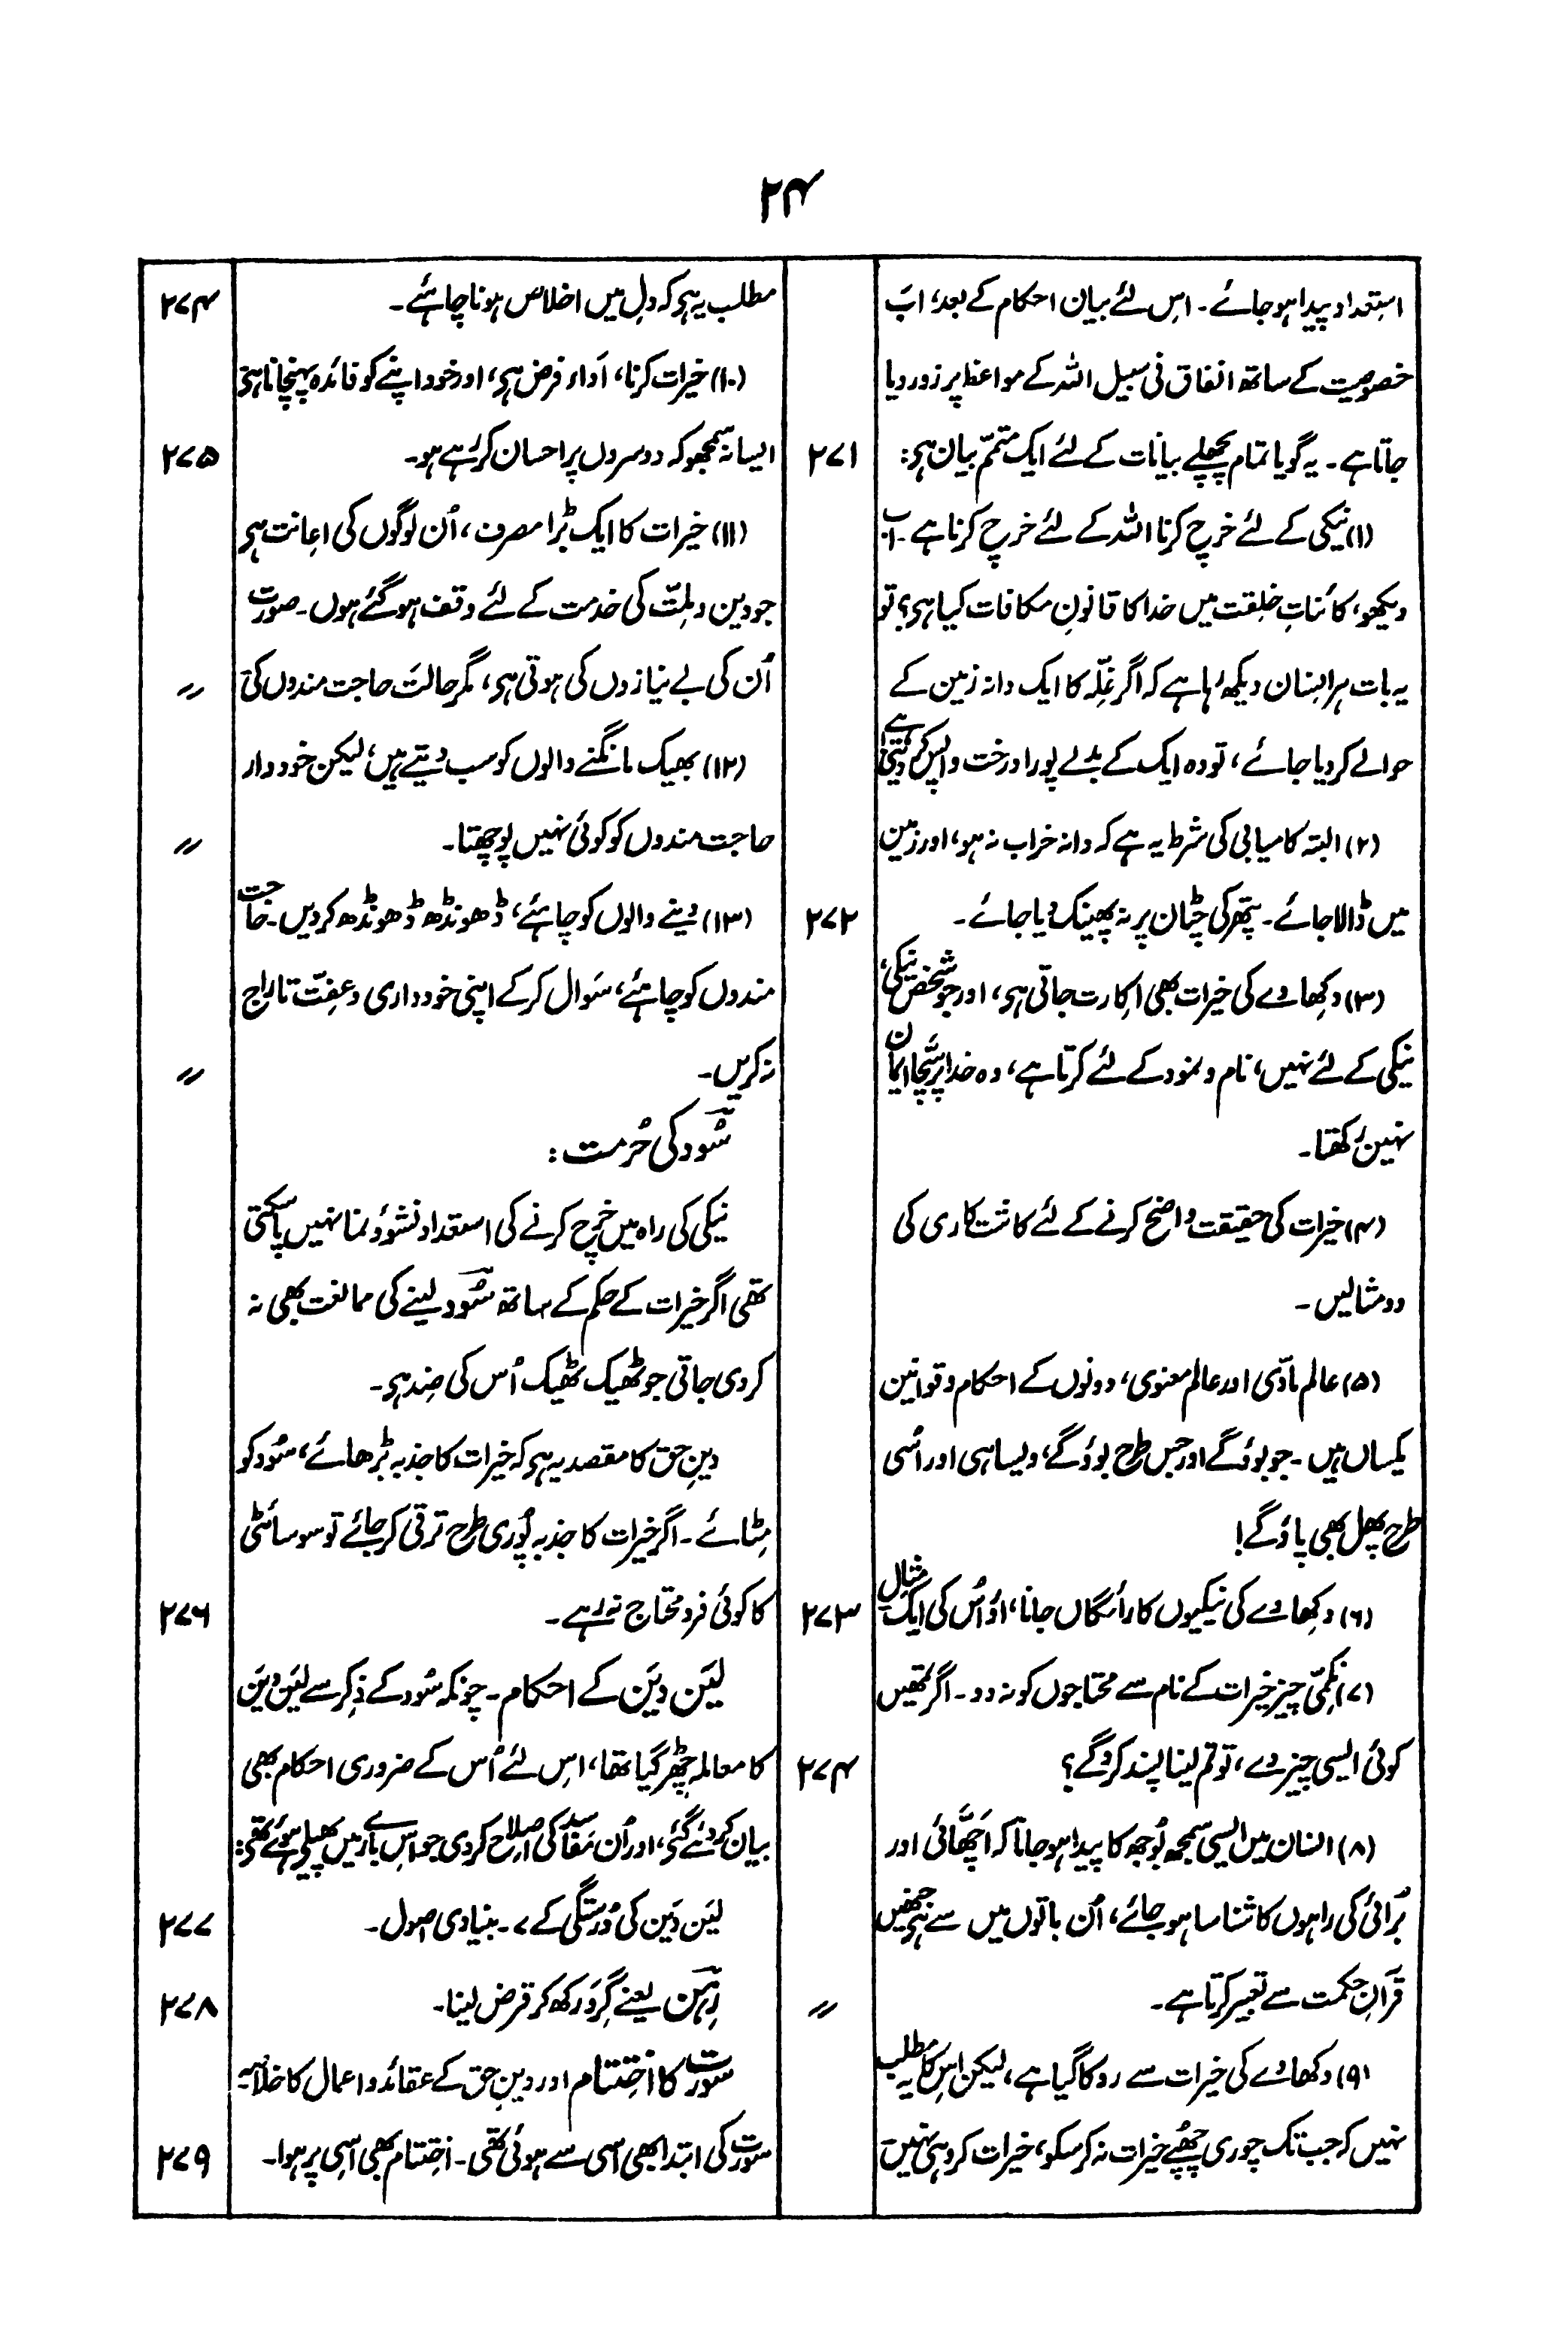 ۲۴
استعداد پیدا ہو جائے۔ اِس لئے بیان احکام کے بعد، اب
خصوصیت کے ساتھ انفاق فی سبیل اللہ کے مواعظ پر زور دیا
جاتا ہے۔ یہ گویا تمام پچھلے بیانات کے لئے ایک متمّم بیان ہی: ۲۷۱
(۱) نیکی کے لئے خرچ کرنا اللہ کے لئے خرچ کرنا ہے۔ اب
دیکھو، کائناتِ خِلقت میں خدا کا قانونِ مکافات کیا ہی؟ تو
یہ بات ہر اِنسان دیکھ رہا ہے کہ اگر غلّہ کا ایک دانہ زمین کے
حوالے کر دیا جائے، تو وہ ایک کے بدلے پورا درخت واپس کر دیتی ہے
(۲) البتہ کامیابی کی شرط یہ ہے کہ دانہ خراب نہ ہو، اور زمین
میں ڈالا جائے۔ پتھر کی چٹان پر نہ پھینک دیا جائے۔ ۲۷۲
(۳) دِکھاوے کی خیرات بھی اکارت جاتی ہی، اور جو شخص نیکی،
نیکی کے لئے نہیں، نام و نمود کے لئے کرتا ہے، وہ خدا پر سچّا ایمان
نہیں رکھتا۔
(۴) خیرات کی حقیقت واضح کرنے کے لئے کاشتکاری کی
دو مثالیں۔
(۵) عالم مادّی اور عالم معنوی، دونوں کے احکام و قوانین
یکساں ہیں۔ جو بوؤ گے اور جس طرح بوؤ گے، ویسا ہی اور اُسی
طرح پھل بھی پاؤ گے!
(۶) دِکھاوے کی نیکیوں کا رائگاں جانا، اور اُس کی ایک مثال ۲۷۳
(۷) نکمّی چیز خیرات کے نام سے محتاجوں کو نہ دو۔ اگر تمھیں
کوئی ایسی چیز دے، تو تم لینا پسند کرو گے؟ ۲۷۴
(۸) انسان میں ایسی سمجھ بُوجھ کا پیدا ہو جانا کہ اچّھائی اور
بُرائی کی راہوں کا شناسا ہو جائے، اُن باتوں میں سے ہی جنھیں
قرآن حکمت سے تعبیر کرتا ہے۔ 〃
(۹) دکھاوے کی خیرات سے روکا گیا ہے، لیکن اِس کا یہ مطلب
نہیں کہ جب تک چوری چُھپے خیرات نہ کر سکو، خیرات کرو ہی نہیں
مطلب یہ ہی کہ دِل میں اخلاص ہونا چاہئے۔ ۲۷۴
(۱۰) خیرات کرنا، اَداءِ فرض ہی، اور خود اپنے کو فائدہ پہنچانا ہی
ایسا نہ سمجھو کہ دوسروں پر احسان کر رہے ہو۔ ۲۷۵
(۱۱) خیرات کا ایک بڑا مصرف، اُن لوگوں کی اعِانت ہی
جو دین و مِلّت کی خدمت کے لئے وقف ہو گئے ہوں۔ صورت
اُن کی بے نیازوں کی ہوتی ہی، مگر حالت حاجت مندوں کی 〃
(۱۲) بھیک مانگنے والوں کو سب دیتے ہیں، لیکن خود دار
حاجت مندوں کو کوئی نہیں پوچھتا۔ 〃
(۱۳) دینے والوں کو چاہئے، ڈھونڈھ ڈھونڈھ کر دیں۔ حاجت
مندوں کو چاہئے، سَوال کر کے اپنی خود داری و عفِت تاراج
نہ کریں۔ 〃
سُود کی حُرمت:
نیکی کی راہ میں خرچ کرنے کی استعداد نشوؤنما نہیں پا سکتی
تھی اگر خیرات کے حکم کے ساتھ سُود لینے کی ممانعت بھی نہ
کر دی جاتی جو ٹھیک ٹھیک اُس کی ضِد ہی۔
دینِ حق کا مقصد یہ ہی کہ خیرات کا جذبہ بڑھائے، سُود کو
مِٹائے۔ اگر خیرات کا جذبہ پُوری طرح ترقی کر جائے تو سوسائٹی
کا کوئی فرد محتاج نہ رہے۔ ۲۷۶
لیَن دیَن کے احکام۔ چونکہ سُود کے ذِکر سے لیَن دیَن
کا معاملہ چِھڑ گیا تھا، اِس لئے اُس کے ضروری احکام بھی
بیان کر دئے گئے، اور اُن مفاسد کی اصلاح کر دی جو اِس بارے میں پھیلے ہوئے تھے:
لیَن دَین کی دُرستگی کے ۷۔ بنیادی اصول۔ ۲۷۷
رہن یعنے گِرَو رکھ کر قرض لینا۔ ۲۷۸
سُورت کا اِختتام اور دینِ حق کے عقائد و اعمال کا خلاصہ
سُورت کی ابتدا بھی اسی سے ہوئی تھی۔ اختتام بھی اسِی پر ہوا۔ ۲۷۹